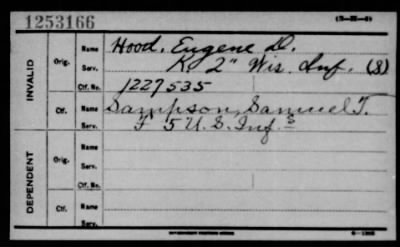 1253166
INVALID
Orig. Name Hood, Eugene D.
Serv. K. 2" Wis. Inf. (S)
Ctf. No. 1227535
Ctf. Name Sampson, Samuel T.
Serv. F 5 U.S. Inf. S
DEPENDENT
Orig. Name
Serv.
Ctf. No.
Ctf. Name
Serv.